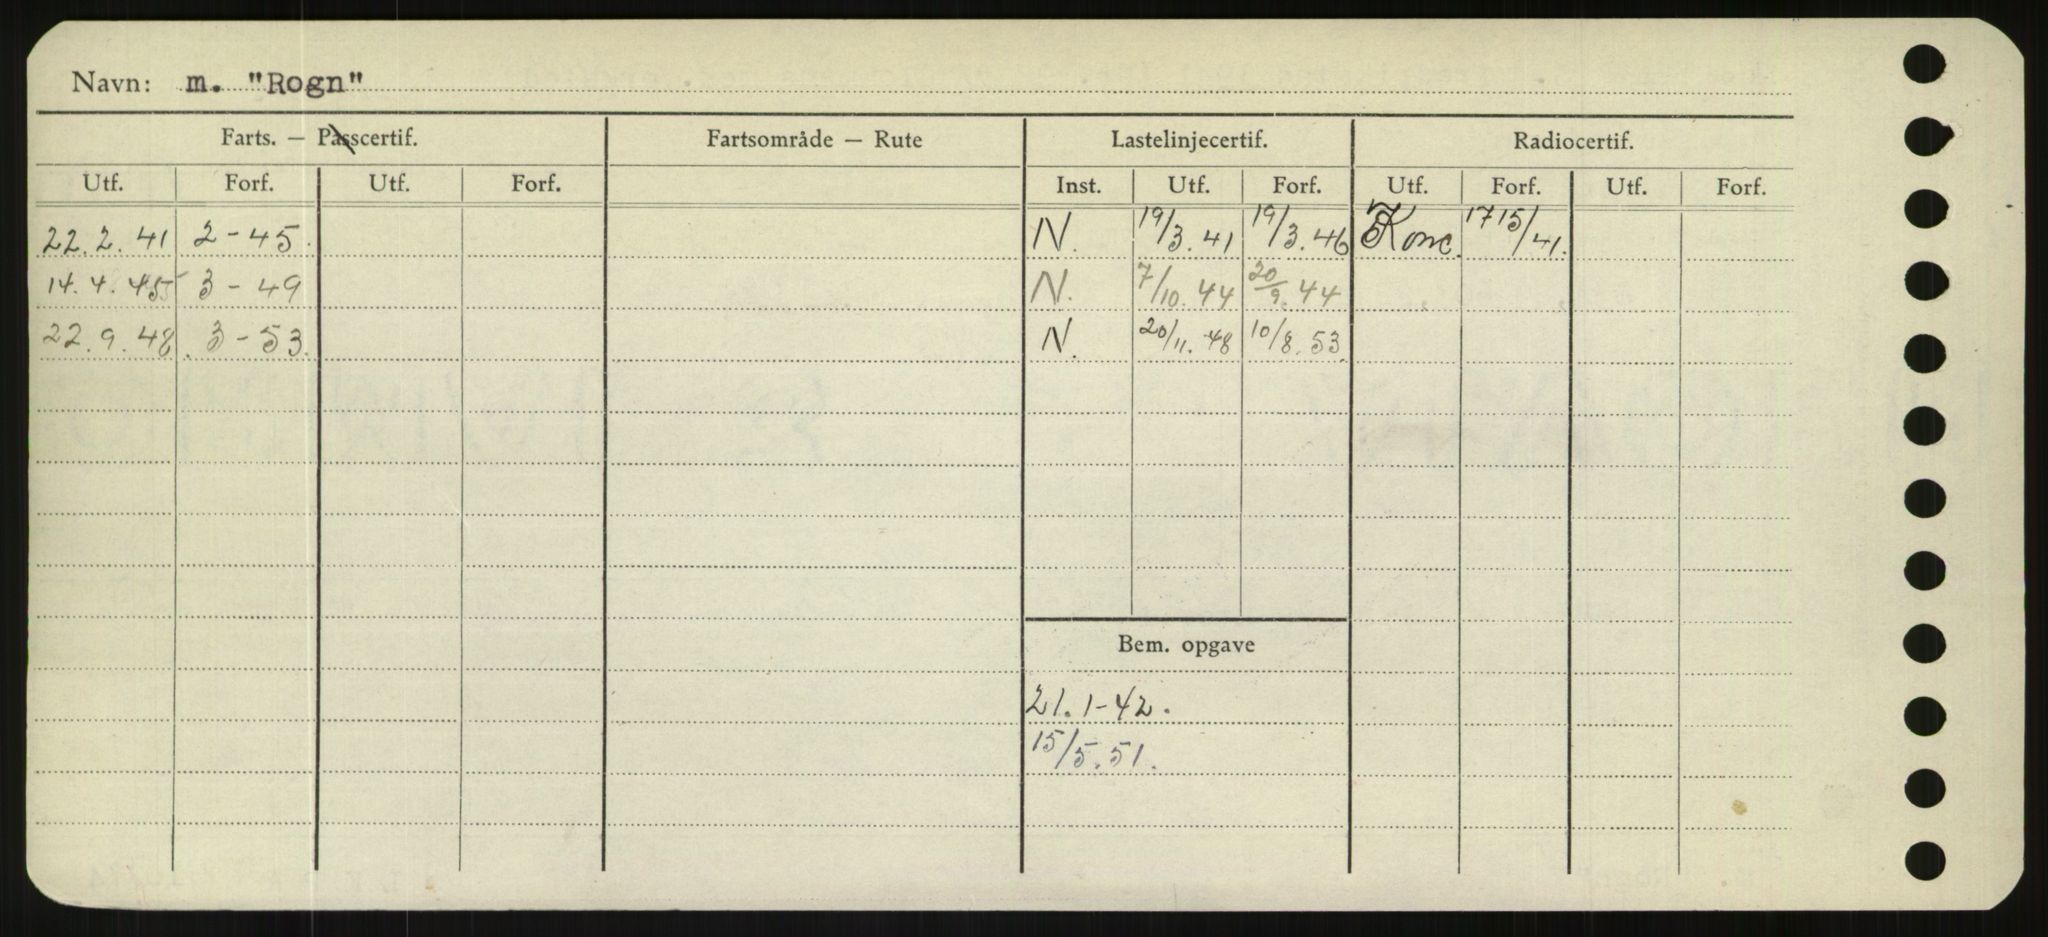 Navn: m. "Rogn"
Farts. — Passcertif. Fartsområde — Rute Lastelinjecertif. Radiocertif.
Utf. Forf. Utf. Forf. Inst. Utf. Forf. Utf. Forf. Utf. Forf.
22.2.41 2-45. N. 19/3.41 19/3.46 Konc. 17 15/41.
14.4.45 3-49 N. 7/10.44 20/9.44
22.9.48. 3-53. N. 20/11.48 10/8.53.
Bem. opgave
21.1-42.
15/5.51.